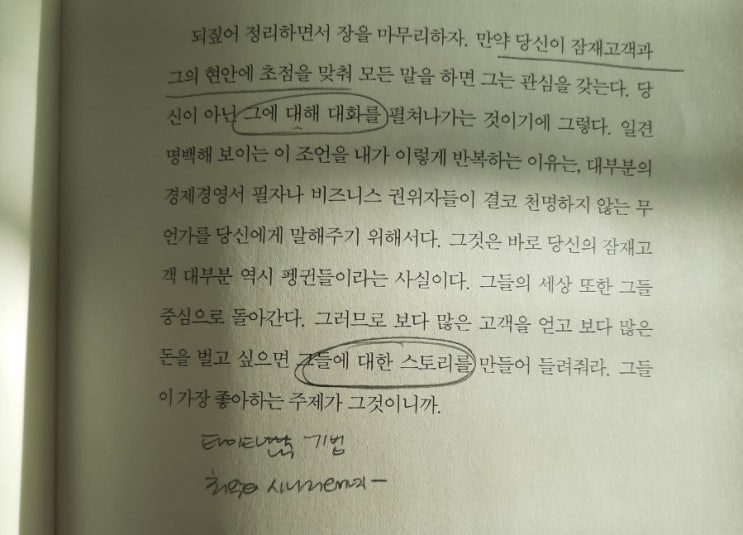 되짚어 정리하면서 장을 마무리하자. 만약 당신이 잠재고객과
그의 현안에 초점을 맞춰 모든 말을 하면 그는 관심을 갖는다. 당
신이 아닌 그에 대해 대화를 펼쳐나가는 것이기에 그렇다. 일견
명백해 보이는 이 조언을 내가 이렇게 반복하는 이유는, 대부분의
경제경영서 필자나 비즈니스 권위자들이 결코 천명하지 않는 무
언가를 당신에게 말해주기 위해서다. 그것은 바로 당신의 잠재고
객 대부분 역시 펭귄들이라는 사실이다. 그들의 세상 또한 그들
중심으로 돌아간다. 그러므로 보다 많은 고객을 얻고 보다 많은
돈을 벌고 싶으면 그들에 대한 스토리를 만들어 들려줘라. 그들
이 가장 좋아하는 주제가 그것이니까.
타이타닉 기법
최악의